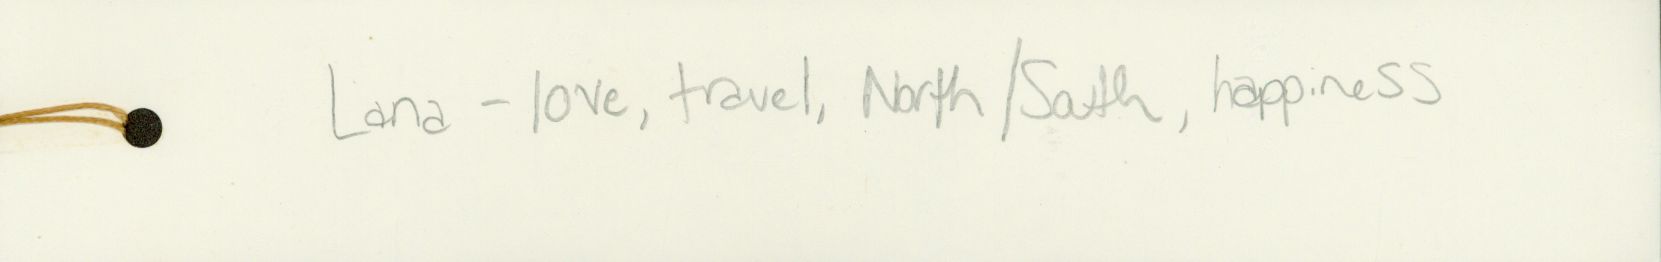 Lana - love, travel, North/South, happiness